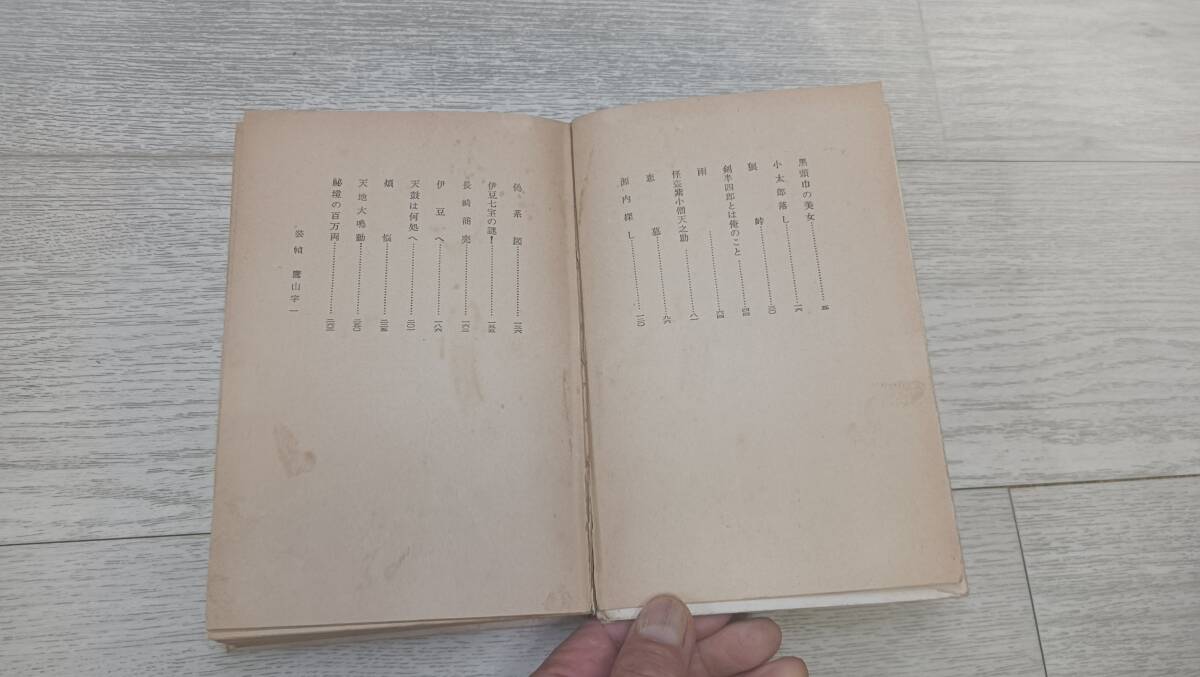 黒頭巾の美女………………五
小太郎落し………………一六
峠………………三〇
剣半四郎とは俺のこと………四
雨………………六四
怪盗紫小僧天之助………八一
墓………………九六
源内探し………………一一〇
偽系図………………一三六
伊豆七宝の謎！………………一五
長崎商売………………一六三
伊豆へ………………一八六
天鼓は何処へ………………二〇一
煩悩………………二三五
天地大鳴動………………二四〇
秘境の百万両………………二六三
装幀 鷹山宇一